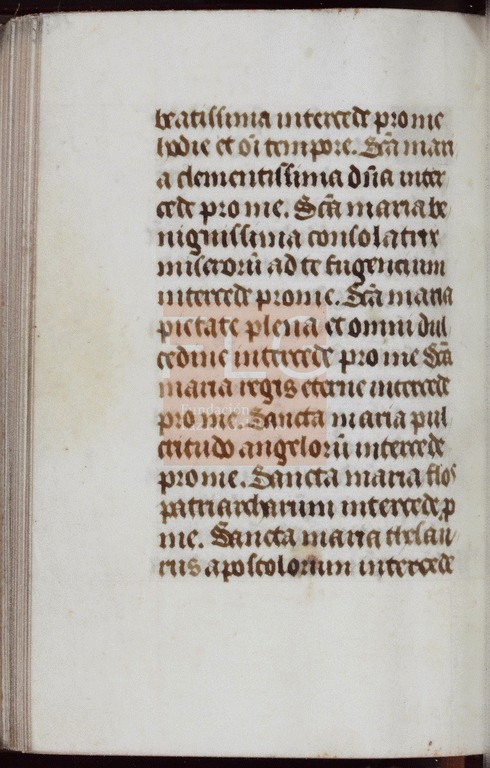 beatissima intercede pro me
hodie et oı̄ tempore. Sc̄a mari
a clementissima dn̄a inter
cede pro me. Sctā maria be
nignissima consolatrix
miserorū ad te fugencium
intercede pro me. Sc̄a maria
pietate plena et omni dul
cedine intercede pro me Sc̄a
maria regis eterne intercede
pro me. Sancta maria pul
critudo angelorū intercede
pro me. Sancta maria flos
patriarcharum intercede ꝓ
me. Sancta maria thesau
rus apostolorum intercede
FLC
Fundación